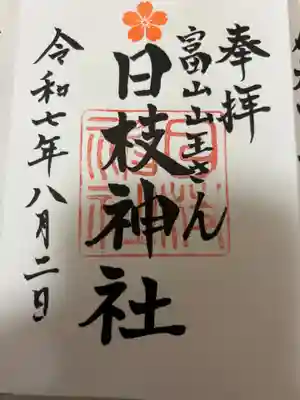 奉拝
富山山王さん
日枝神社
令和七年八月二日